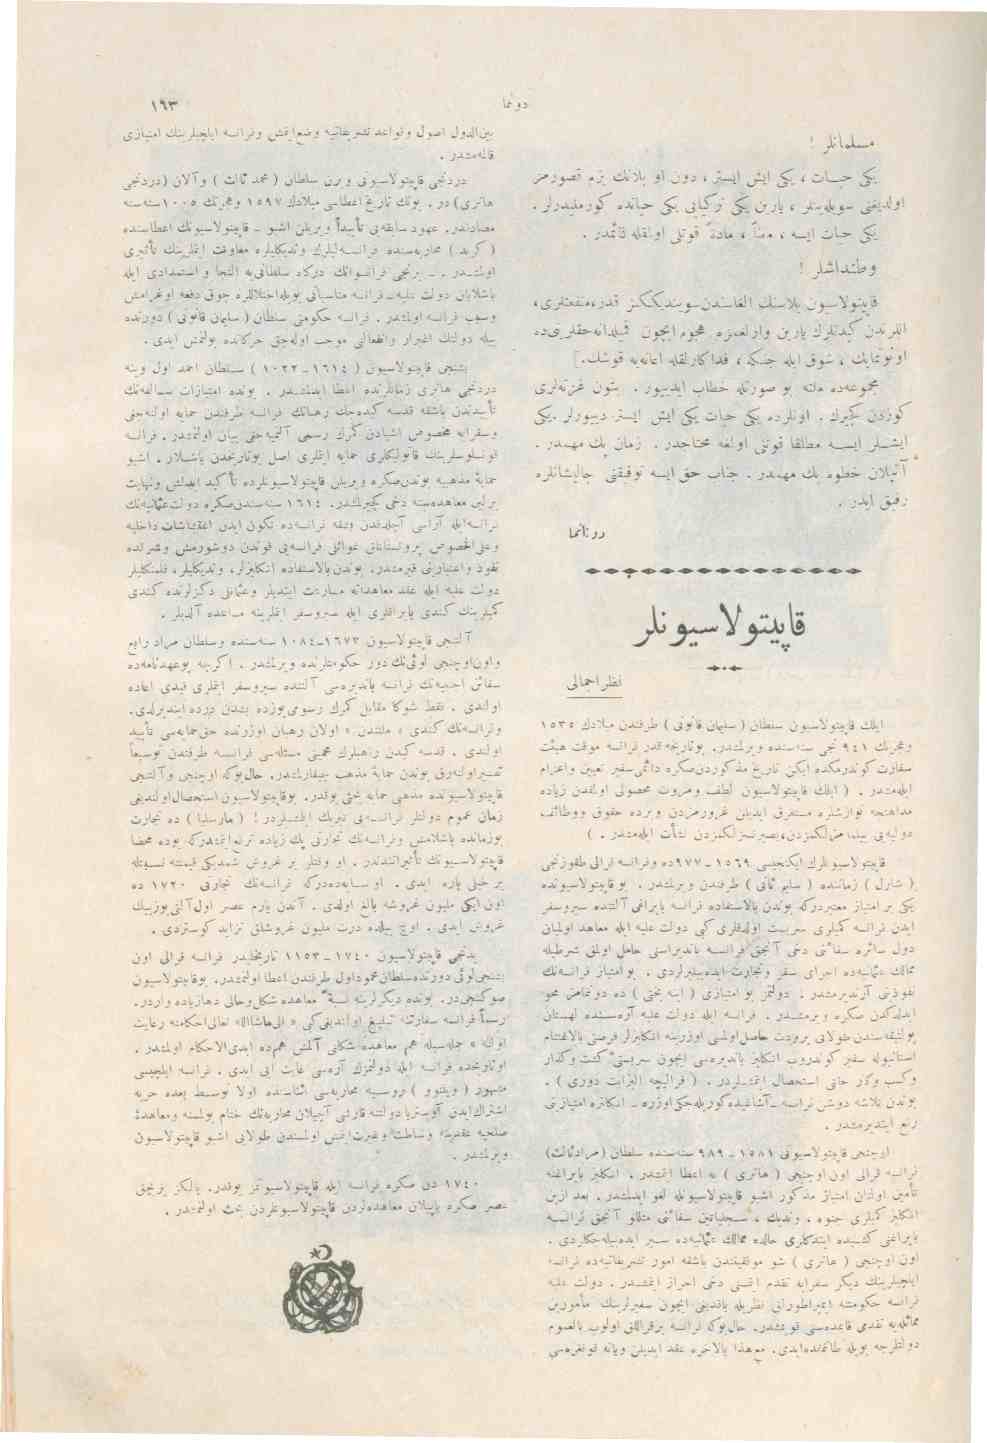 دوننما
١٩٣
مسلمانلر !
یکی حیات ، یکی ایش ایستر ، دون او بلانك بزم قصورمز
اولدیغنی سویله‌ینلر ، یارین یکی ترکیایی یکی حیاتده کورملیدرلر .
یکی حیات ایسه ، معناً ، مادةً قوتلی اولمقله قائمدر .
وطنداشلر !
قاپیتولاسیون بلاسنك الغاسندن سویندیککز قدر ، منفعتلری
اللرندن کیدنلرك یارین وارلغمزه هجوم ایچون
اونوتمایك ، شوق ایله جنکه ، فداکارلقله اعانه‌یه قوشك .]
مجموعه‌ده ملته بو صورتله خطاب ایدییور . بتون غزته‌لری
کوزدن کچیرك . اونلرده یکی حیات یکی ایش ایستر دییورلر . یکی
ایشلر ایسه مطلقا قوتلی اولمغه محتاجدر . زمان پك مهمدر .
آتیلان خطوه پك مهمدر . جناب حق ایسه توفیقنی چالیشانلره
رفیق ایدر .
دوننما
قاپیتولاسیونلر
نظر اجمالی
ایلك قاپیتولاسیون سلطان ( سلیمان قانونی ) طرفندن میلادك ١٥٣٥
وهجرتك ٩٤١ نجی سنه‌سنده ویرلمشدر . بوتاریخه قدر فرانسه موقت هیئت
سفارت کوندرمکده ایکن تاریخ مذکوردن‌صکره دائمی سفیر تعیین واعزام
ایله‌مشدر . ( ایلك قاپیتولاسیون لطف ومروت محصولی اولمقدن زیاده
قاپیتولاسیونلرك ایکنجیسی ١٥٦٩ـ٩٧٧ ده وفرانسه قرالی طقوزنجی
( شارل ) زماننده ( سلیم ثانی ) طرفندن ویرلمشدر . بو قاپیتولاسیونده
یکی بر امتیاز معتبردرکه بوندن بالاستفاده فرانسه بایراغی آلتنده سیروسفر
ایدن فرانسه کمیلری سربست اولدقلری کبی دولت علیه ایله معاهد اولمیان
دول سائره سفائنی دخی آنجق فرانسه باندیراسنی حامل اولمق شرطیله
ممالك عثمانیه‌ده اجرای سفر وتجارت ایده‌بیلیرلردی . بوامتیاز فرانسه‌نك
نفوذینی آرتدیرمشدر . دولتمز بو امتیازی ( اینه بختی ) ده دونماض محو
ایدلدکدن صکره ویرمشدر . فرانسه ایله دولت علیه آره‌سنده لهستان
پولتیقه‌سندن طولایی برودت حاصل اولمسی اوزرینه انکلیزلر فرصتی بالاغتنام
استانبوله سفیر کوندروب انکلیز باندیره‌سی ایچون سربستی کشت وکذار
وکسب وکار حقنی استحصال ایتمشلردر . ( قرالیچه الیزابت دوری ) .
بوندن تلاشه دوشن فرانسه ـ آشاغیده کوریله‌جکی اوزره ـ انکلتره امتیازینی
رفع ایتدیرمشدر .
اوچنجی قاپیتولاسیونی ١٥٨١ ـ ٩٨٩ سنه‌سنده سلطان (مراد ثالث)
فرانسه قرالی اون اوچنجی ( هانری ) یه اعطا ایتمشدر . انکلیز بایراغنه
تأمین اولنان امتیاز مذکور اشبو قاپیتولاسیونله لغو ایدلمشدر . بعد ازین
انکلیز کمیلری جنوه ، وندیك ، سیجلیاتین سفائنی مثللو آنجق فرانسه
بایراغنی کشیده ایتدکلری حالده ممالك عثمانیه‌ده سیر ایده‌بیله‌جکلردی .
اون اوچنجی ( هانری ) شو موفقیتندن باشقه امور تشریفاتیه‌ده فرانسه
ایلچیلرینك دیکر سفرایه تقدم ایتمسنی دخی احراز ایتمشدر . دولت علیه
فرانسه حکومتنه ایمپراطورلق نظریله باقدیغی ایچون سفیرلرینك مأمورین
مماثله‌یه تقدمی قاعده‌سنی قویمشدر . حال‌بوکه فرانسه برقراللق اولوب بالعموم
دولتلرجه بویله طانمقده‌ایدی . مع‌هذا بالاخره عقد ایدیلن ویانه قونغره‌سی
بین‌الدول اصول وقواعد تشریفاتیه وضع‌ایتمش وفرانسه ایلچیلرینك امتیازی
قالمامشدر .
دردنجی قاپیتولاسیونی ویرن سلطان ( محمد ثالث ) وآلان (دردنجی
هانری) در . بونك تاریخ اعطاسی میلادك ١٥٩٧ وهجرتك ١٠٠٥ سنه‌سنه
مصادفدر . عهود سابقه‌یی تأییداً ویریلن اشبو ـ قاپیتولاسیونك اعطاسنده
( کرید ) محاربه‌سنده فرانسه‌لیلرك وندیکلیلره معاونت ایتملرینك تأثیری
اولمشدر . ـ برنجی فرانسوانك درکاه سلطانی‌یه التجا و استمدادی ایله
باشلایان دولت علیه ـ فرانسه مناسباتی بویله‌اختلاللره چوق دفعه اوغرامش
وسبب فرانسه اولمشدر . فرانسه حکومتی سلطان ( سلیمان قانونی ) دورنده
بیله دولتك اغبرار وانفعالنی موجب اوله‌جق حرکاتده بولنمش ایدی .
بشنجی قاپیتولاسیون ( ١٦١٤ـ١٠٢٢ ) سلطان احمد اول وینه
دردنجی هانری زمانلرنده اعطا ایدلمشدر . بونده امتیازات سالفه‌نك
تأییدندن باشقه قدسه کیده‌جك رهبانك فرانسه طرفندن حمایه اولنه‌جغی
وسفرایه مخصوص اشیادن کمرك رسمی آلنمیه‌جغی بیان اولنمشدر . فرانسه
قونسلوسلرینك قاتولیکلری حمایه ایتملری اصل بوتاریخدن باشلار . اشبو
حمایهٔ مذهبیه بوندن‌صکره ویریلن قاپیتولاسیونلرده تأکید ایدلمش ونهایت
برلین معاهده‌سنه دخی کچیرلمشدر . ١٦١٤ سنه‌سندن‌صکره دولت عثمانیه‌نك
فرانسه‌ایله آراسی آچلدقدن وینه فرانسه‌ده تکون ایدن اغتشاشات داخلیه
وعلی‌الخصوص پروتستانلق غوائلی فرانسه‌یی قوتدن دوشورمش وشرقده
نفوذ واعتبارینی قیرمشدر . بوندن بالاستفاده انکلیزلر، وندیکلیلر، فلمنکلیلر
دولت علیه ایله عقد معاهداته مسارعت ایتدیلر وعثمانلی دکزلرنده کندی
کمیلرینك کندی بایراقلری ایله سیروسفر ایتملرینه مساعده آلدیلر .
آلتنجی قاپیتولاسیون ١٦٧٣ـ١٠٨٤ سنه‌سنده وسلطان مراد رابع
واون‌اوچنجی لوئی‌نك دور حکومتلرنده ویرلمشدر . اکرچه بوعهدنامه‌ده
سفائن اجنبیه‌نك فرانسه باندیره‌سی آلتنده سیروسفر ایتملری قیدی اعاده
اولندی . فقط شوکا مقابل کمرك رسومی‌یوزده بشدن درده ایندیرلدی .
وفرانسه‌نك کندی « ملتندن » اولان رهبان اوزرنده حق‌حمایه‌سی تأیید
اولندی . قدسه کیدن راهبلرك مسئله‌سی فرانسه طرفندن توسیعاً
تفسیراولنه‌رق بوندن حمایهٔ مذهب چیقارلمشدر. حال‌بوکه اوچنجی وآلتنجی
قاپیتولاسیونده مذهبی حمایه بحثی یوقدر . بوقاپیتولاسیون استحصال‌اولندیغی
زمان عموم دولتلر فرانسه‌یی تبریك ایتمشلردر ! ( مارسلیا ) ده تجارت
بوزمانده باشلامش وفرانسه‌نك تجارتی پك زیاده ترقی ایتمشدرکه بوده محضا
قاپیتولاسیونك تأثیراتندندر . او وقتلر بر غروش شمدیکی قیمتنه نسبتله
بر خیلی پاره ایدی . او سایه‌ده‌درکه فرانسه‌نك تجارتی ١٧٢٠ ده
اون ایکی ملیون غروشه بالغ اولدی . آندن یارم عصر اول آلتی‌یوزبیك
غروش ایدی . اوچ ییلده درت ملیون غروشلق تزاید کوستردی .
یدنجی قاپیتولاسیون ١٧٤٠ ـ ١١٥٣ تاریخلیدر فرانسه قرالی اون
بشنجی‌لوئی دورنده‌سلطان‌محموداول طرفندن اعطا اولنمشدر. بوقاپیتولاسیون
صوکنجی‌در. بونده دیکرلرینه نسبةً معاهده شکل‌وحالی دهازیاده واردر .
رسماً فرانسه سفارتنه تبلیغ اولندیغی‌کبی « الی‌ماشاالله تعالی‌احکامنه رعایت
اولنه » جمله‌سیله هم معاهده شکلنی آلمش هم‌ده ابدی‌الاحکام اولمشدر .
اوتاریخده فرانسه ایله دولتمزك آره‌سی غایت ایی ایدی . فرانسه ایلچیسی
مشهور ( ویلنوو ) روسیه محاربه‌سی اثناسنده اولا توسط بعده حربه
اشتراك‌ایدن آوستریا دولتنه قارشی آچیلان محاربه‌نك ختام بولمسنه ومعاهدهٔ
صلحیه عقدینه وساطت وغیرت‌ایتمش اولمسندن طولایی اشبو قاپیتولاسیون
ویرلمشدر .
١٧٤٠ دن صکره فرانسه ایله قاپیتولاسیونمز یوقدر. یالکز برنجی
عصر صکره یاپیلان معاهده‌لردن قاپیتولاسیونلردن بحث اولنمشدر .